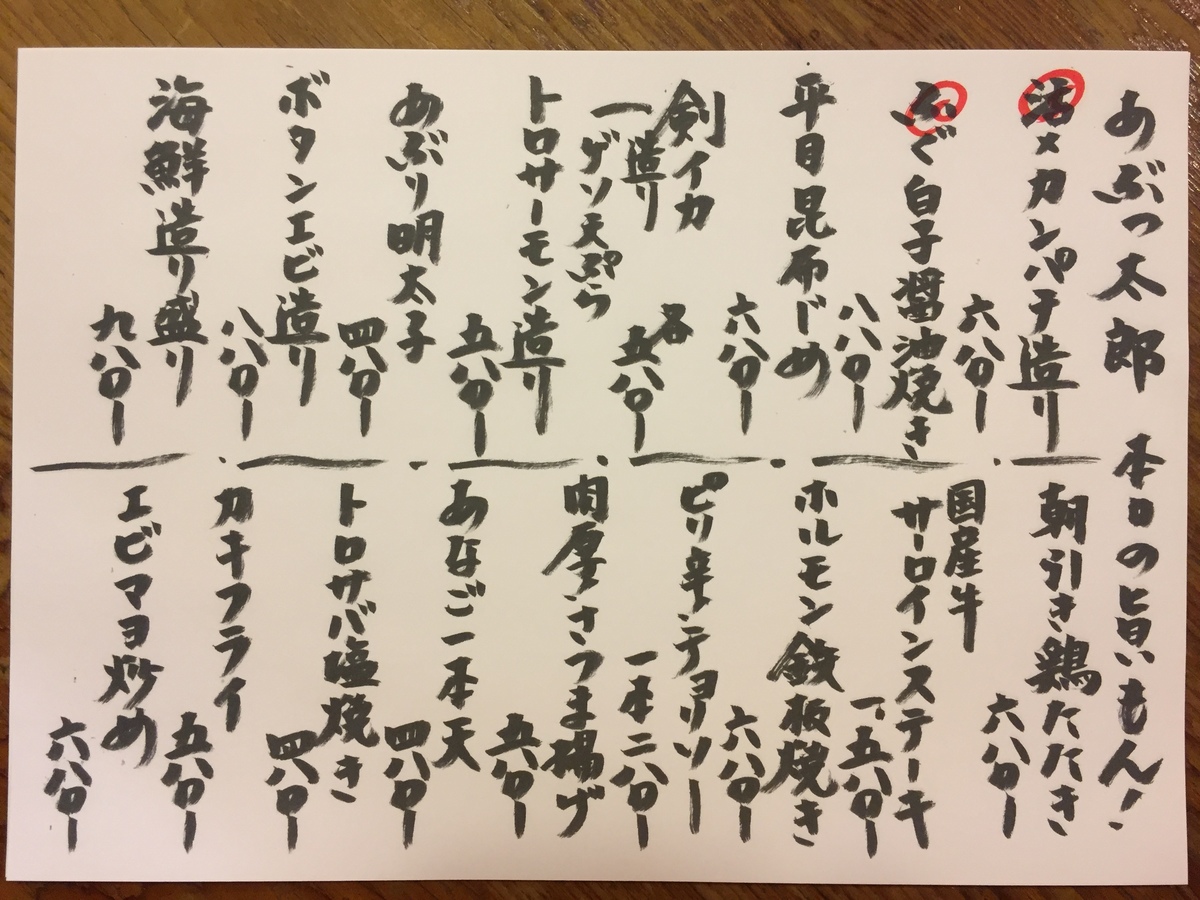 あぶつ太郎 本日の旨いもん!
活〆カンパチ造り
六八〇ー
ふぐ白子醤油焼き
八八〇ー
平目昆布じめ
六八〇ー
剣イカ
ー造り
ーゲソ天ぷら
各
五八〇ー
トロサーモン造り
五八〇ー
あぶり明太子
四八〇ー
ボタンエビ造り
八八〇ー
海鮮造り盛り
九八〇ー
朝引き鶏たたき
六八〇ー
国産牛
サーロインステーキ
一、五八〇ー
ホルモン鉄板焼き
六八〇ー
ピリ辛チョリソー
一本二八〇ー
肉厚さつま揚げ
五八〇ー
あなご一本天
四八〇ー
トロサバ塩焼き
四八〇ー
カキフライ
五八〇ー
エビマヨ炒め
六八〇ー